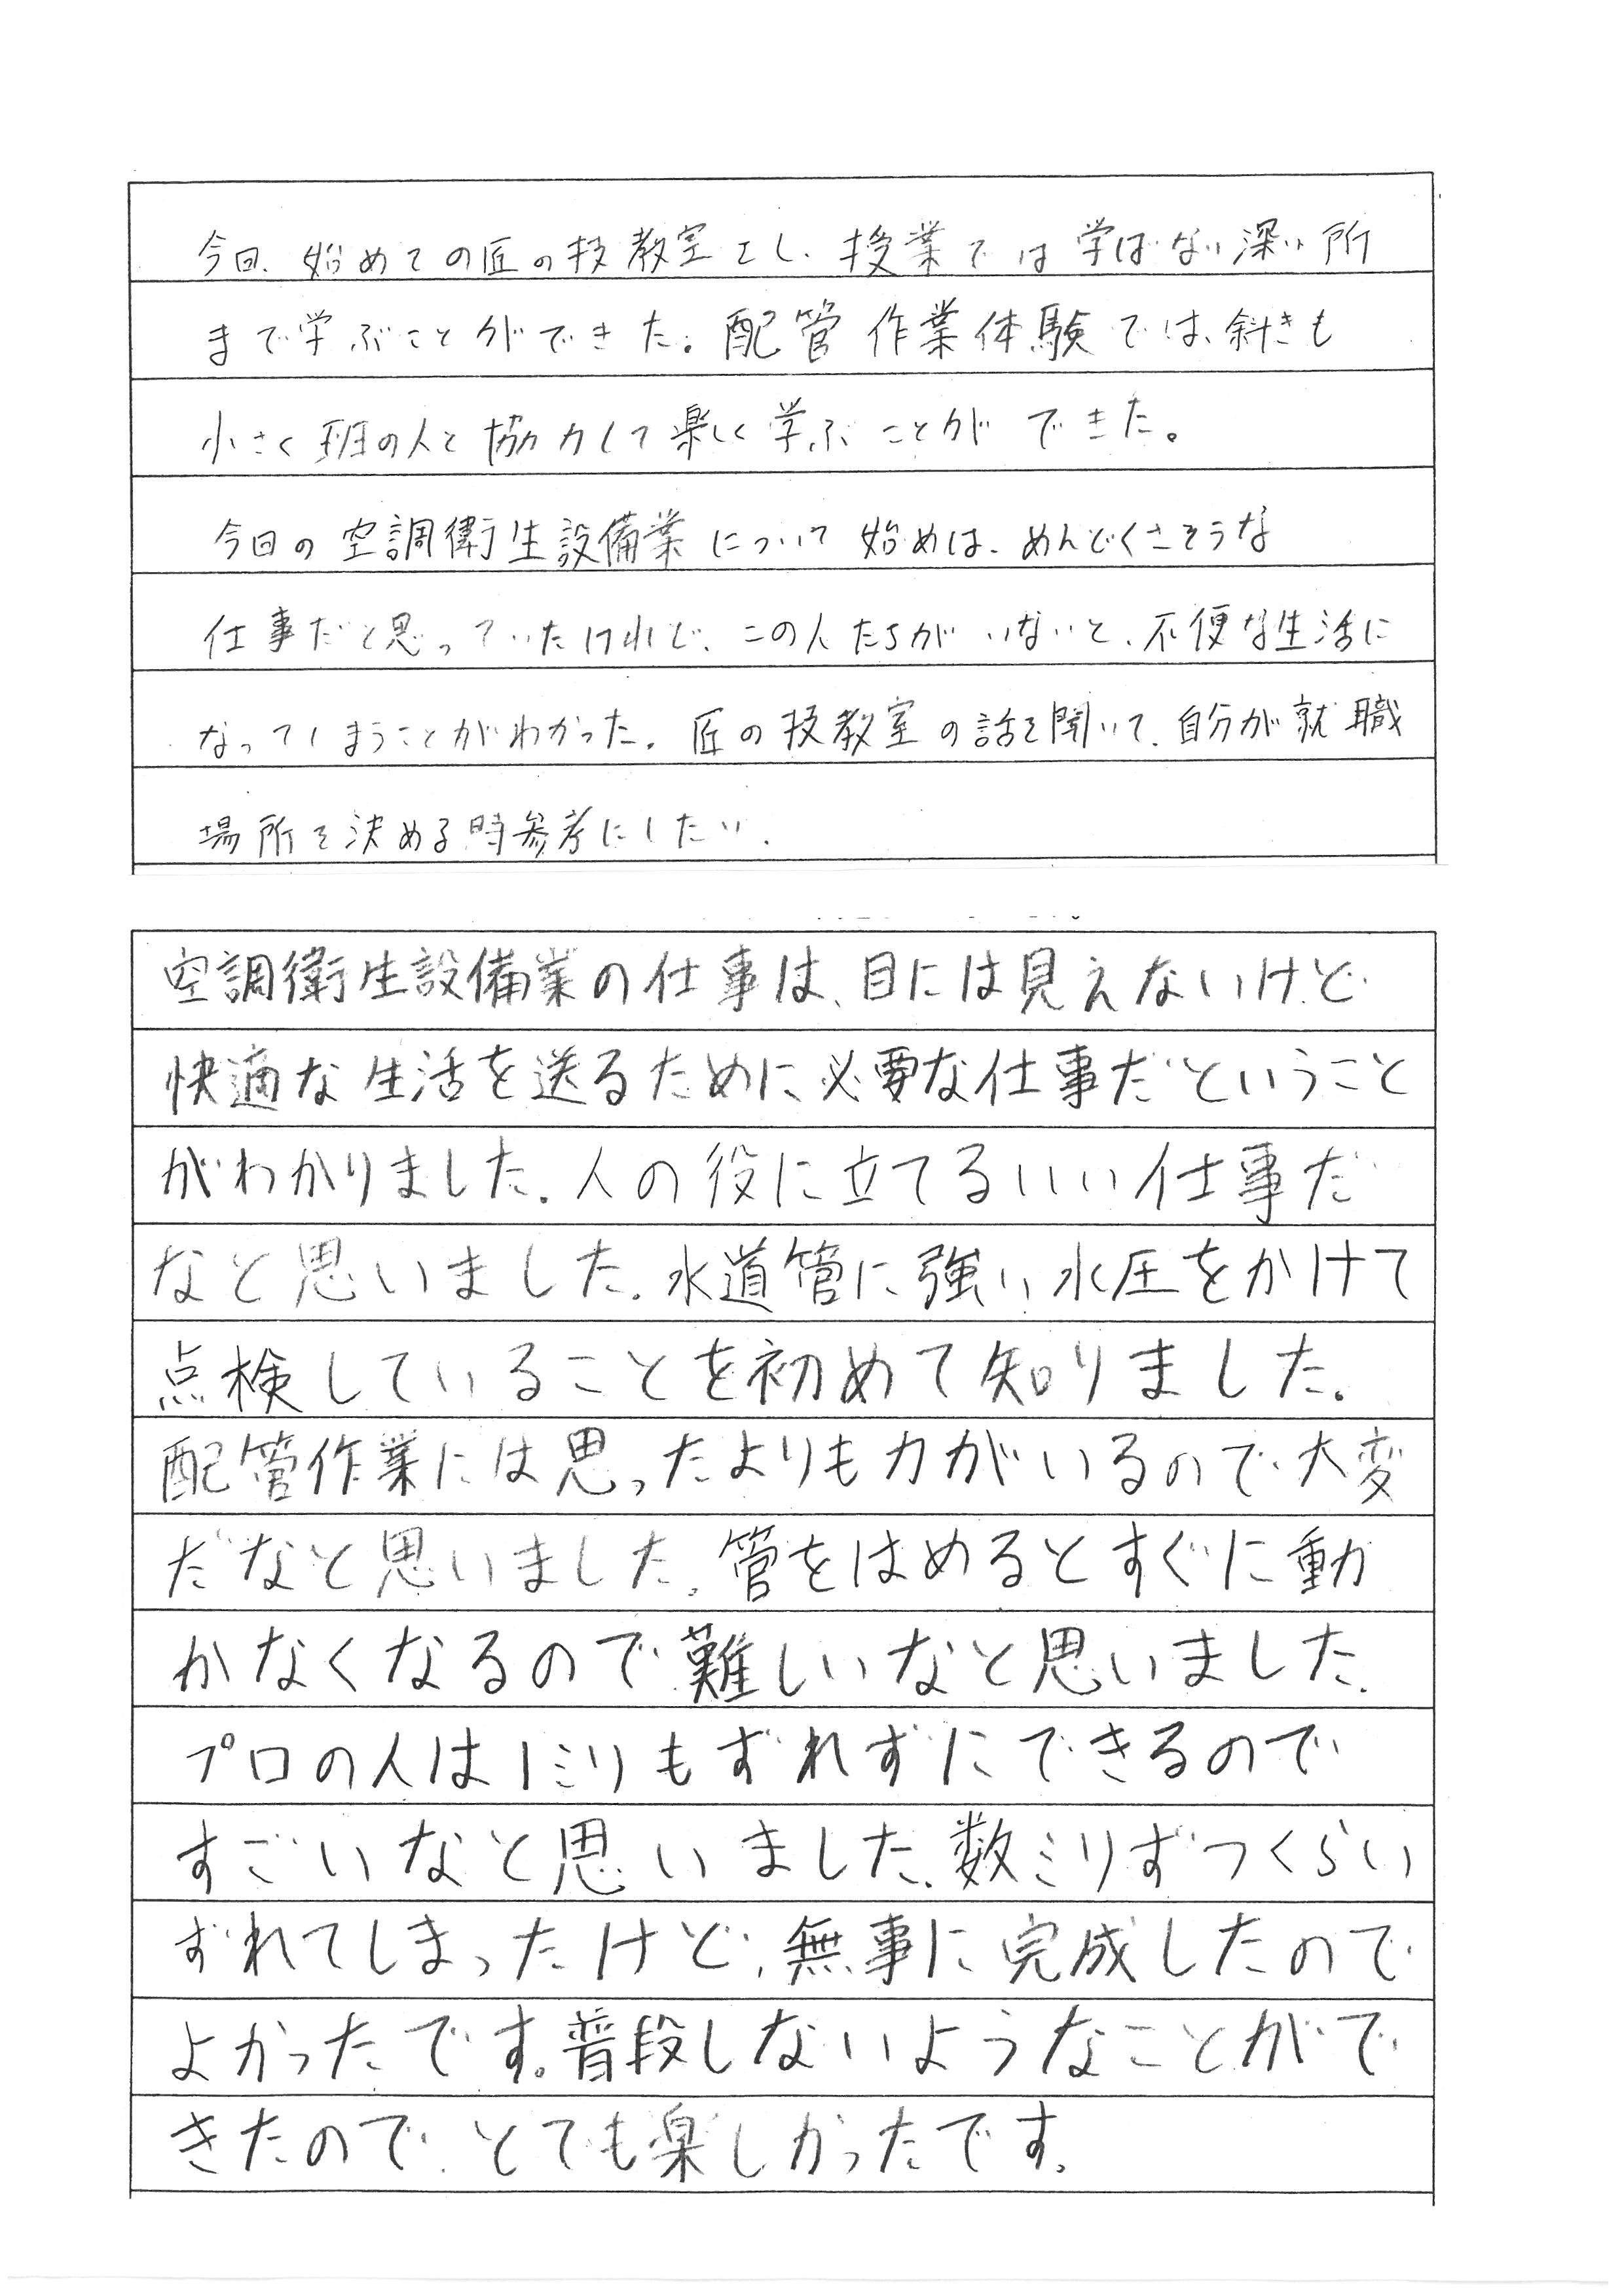 今回、始めての匠の技教室をし、授業では学ばない深い所
まで学ぶことができた。配管作業体験では、斜きも
小さく班の人と協力して楽しく学ぶことができた。
今回の空調衛生設備業について始めは、めんどくさそうな
仕事だと思っていたけれど、この人たちがいないと、不便な生活に
なってしまうことがわかった。匠の技教室の話を聞いて、自分が就職
場所を決める時参考にしたい。
空調衛生設備業の仕事は、目には見えないけど
快適な生活を送るために必要な仕事だということ
がわかりました。人の役に立てるいい仕事だ
なと思いました。水道管に強い水圧をかけて
点検していることを初めて知りました。
配管作業には思ったよりも力がいるので大変
だなと思いました。管をはめるとすぐに動
かなくなるので難しいなと思いました。
プロの人は1ミリもずれずにできるので
すごいなと思いました。数ミリずつくらい
ずれてしまったけど、無事に完成したので
よかったです。普段しないようなことがで
きたので、とても楽しかったです。